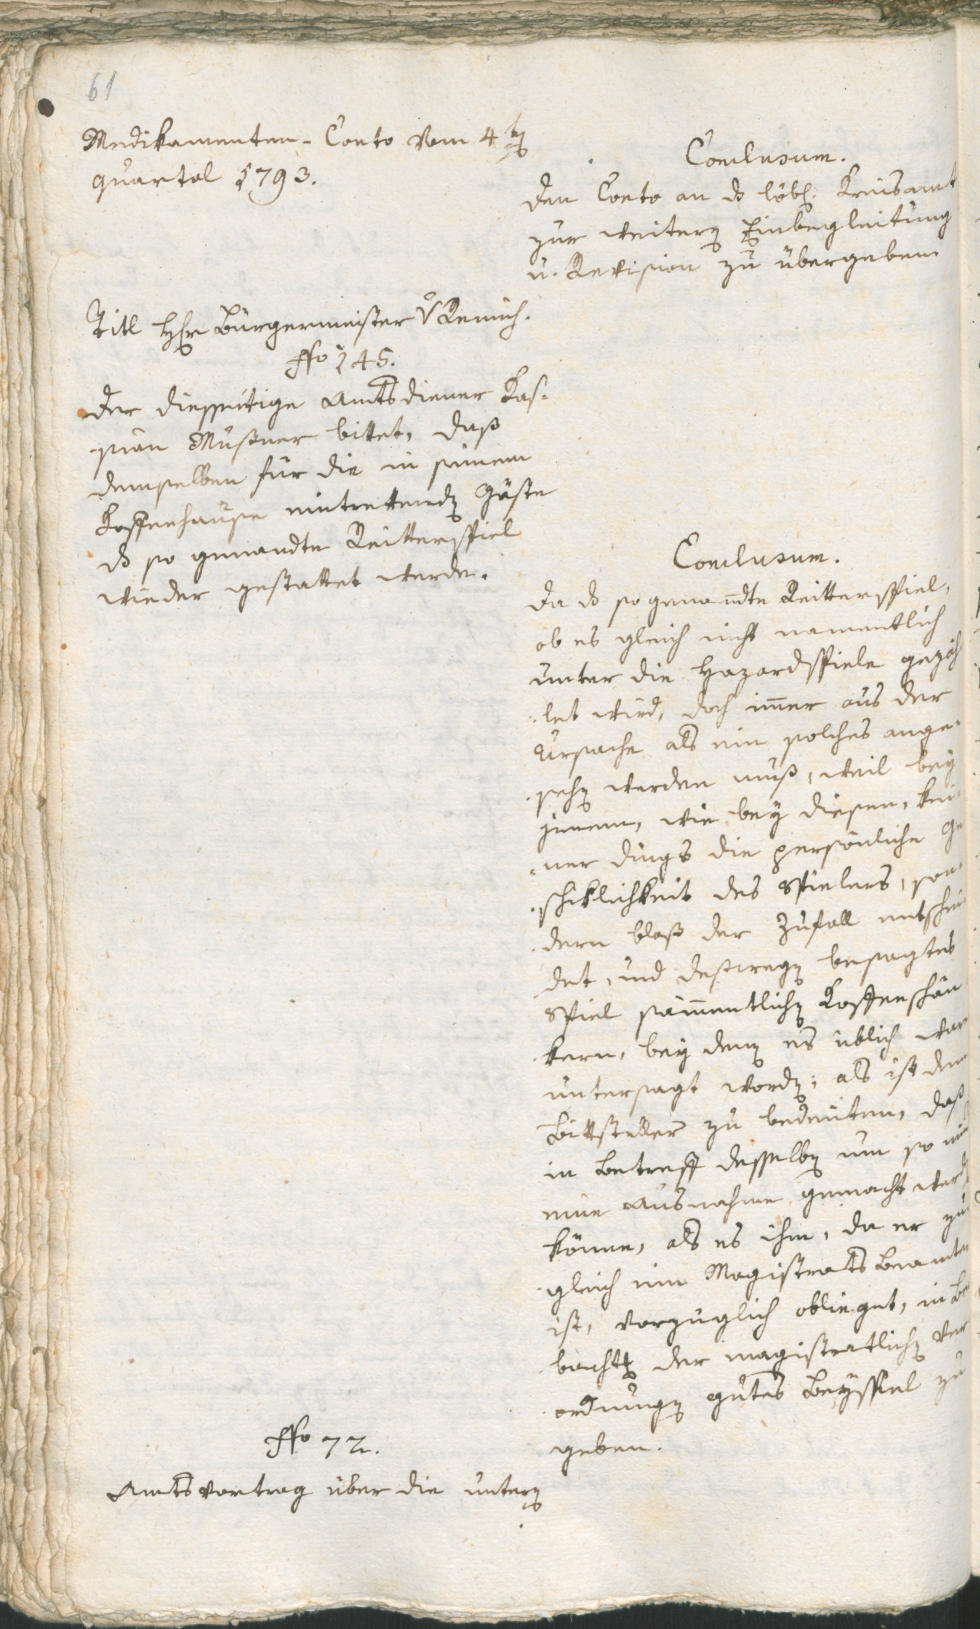 61
Medikamenten-Conto vom 4ten
quartal 1793.
Conclusum.
den Conto an ds löbl. Kreisamt
zur weitern Einbegleitung
u. Revision zu übergeben
Titl Hr Bürgermeister v Remich.
ffo 145.
der diesseitige Amtsdiener Kas¬
sian Mußner bittet, daß
demselben für die in seinem
Koffeehause eintrettendn Gäste
ds so genandte Reitterspiel
wieder gestattet werde.
Conclusum.
da ds so genandte Reitterspiel,
ob es gleich nicht namentlich
unter die Hazardspiele gezäh
let wird, doch imer aus der
Ursache als ein solches ange¬
sehn werden muß, weil bey
jenem, wie bey diesen, kei¬
ner dings die persönliche Ge
schiklichkeit des Spielers, son¬
dern bloß der Zufall entschei
det, und deßwegn besagtes
Spiel sämmentlichn Koffeeschän
kern, bey denn es üblich war
untersagt wordn; als ist dem
Bittsteller zu bedeuten, daß
in Betreff desselbn um so
eine Ausnahme gemacht werdn
könne, als es ihm, da er zu
gleich ein Magistrats Beamter
ist, vorzüglich oblieget, in Be
bachtg der magistratlichn Ver
ordnungn gutes Beyspiel zu
geben.
ffo 72.
Amtsvortrag über die untern